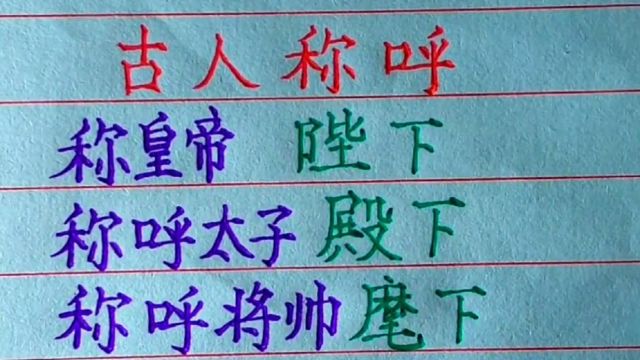 古人称呼
称皇帝 陛下
称呼太子 殿下
称呼将帅 麾下